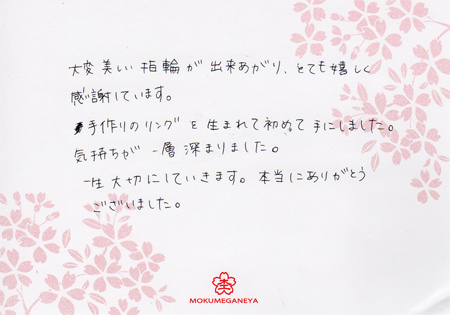 大変美しい指輪が出来あがり、とても嬉しく
感謝しています。
手作りのリングを生まれて初めて手にしました。
気持ちが一層深まりました。
一生大切にしていきます。本当にありがとう
ございました。
MOKUMEGANEYA